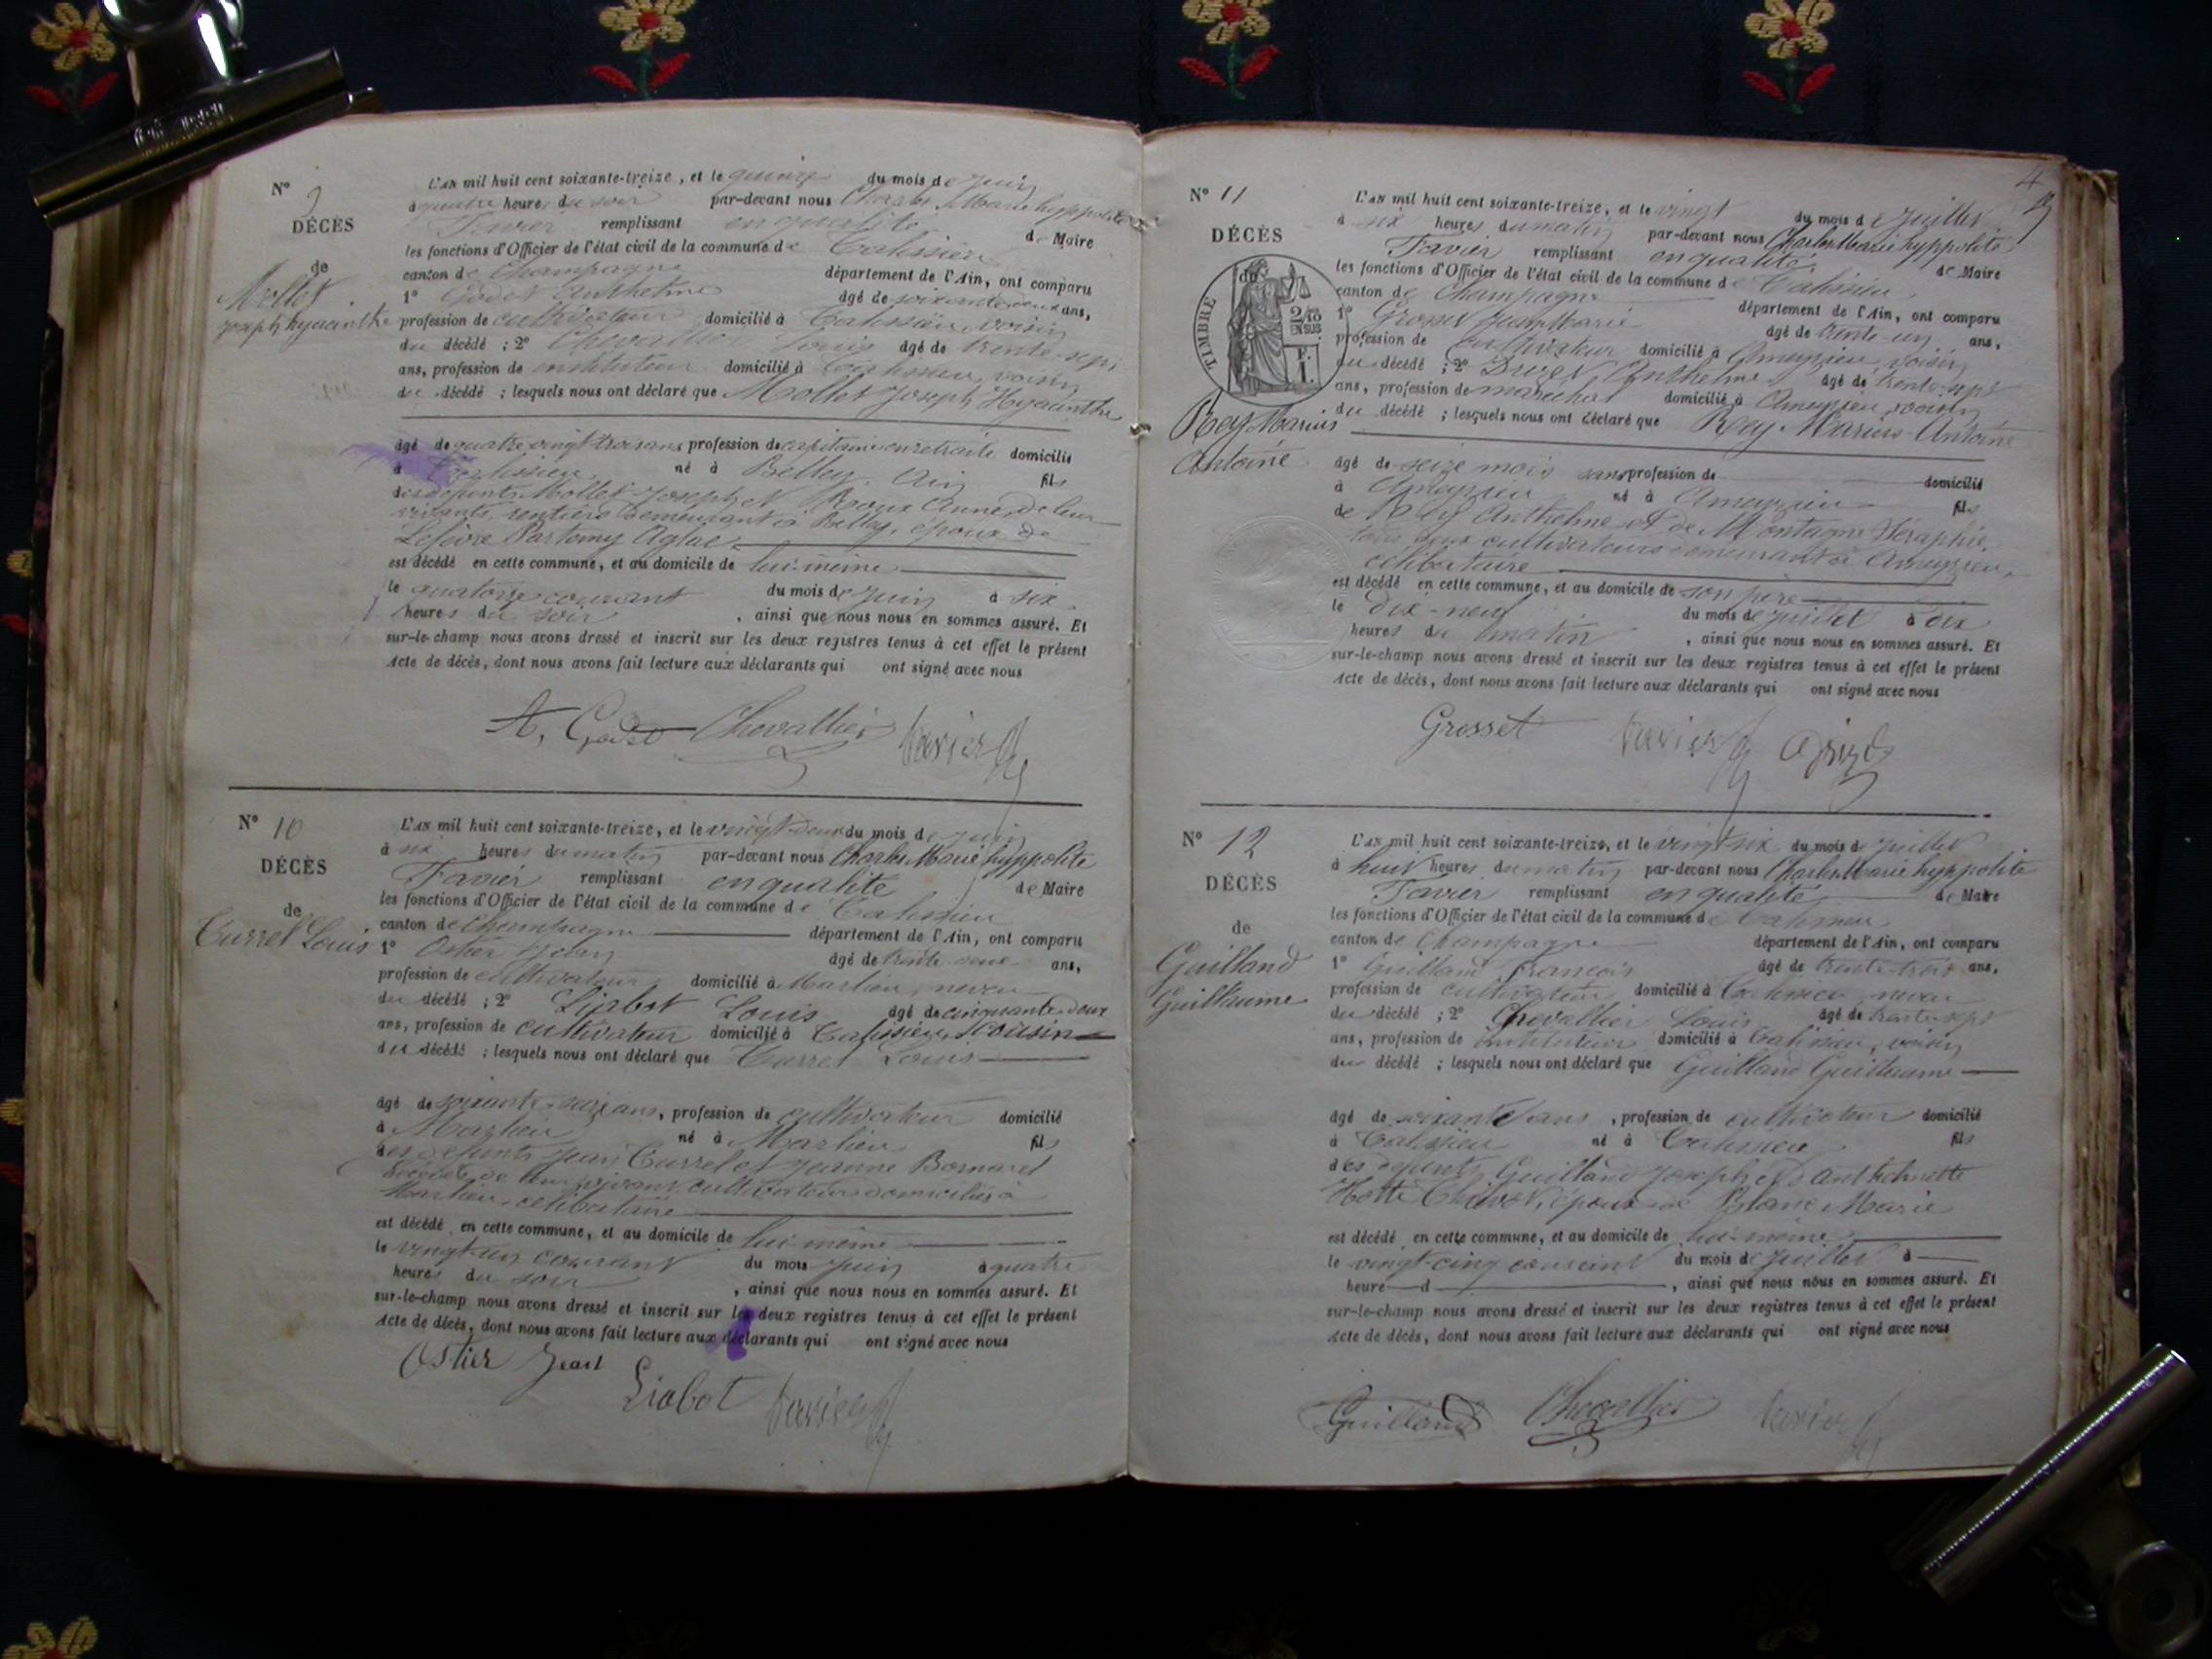 N° 9
DÉCÈS
de
Mollet
joseph hyacinthe
L'AN mil huit cent soixante-treize, et le quinze du mois de juin
à quatre heures du soir par-devant nous Charles Marie hyppolite
Favier remplissant en qualité de Maire
les fonctions d'Officier de l'état civil de la commune de Talissieu
canton de Champagne département de l'Ain, ont comparu
1° Godet Anthelme âgé de soixante deux ans,
profession de cultivateur domicilié à Talissieu, voisin
du décédé ; 2° Chevallier Louis âgé de trente-sept
ans, profession de instituteur domicilié à Talissieu, voisin
du décédé ; lesquels nous ont déclaré que Mollet Joseph Hyacinthe
âgé de quatre vingt trois ans profession de capitaine en retraite domicilié
à Talissieu né à Belley, Ain fils
des défunts Mollet Joseph et Roux Anne, de leur
vivants rentiers demeurant à Belley, époux de
Lefèvre Aglaé
est décédé en cette commune, et au domicile de lui-même
le quatorze courant du mois de juin à six
heures du soir , ainsi que nous nous en sommes assuré. Et
sur-le-champ nous avons dressé et inscrit sur les deux registres tenus à cet effet le présent
Acte de décès, dont nous avons fait lecture aux déclarants qui ont signé avec nous
A. Godet Chevallier Favier
N° 10
DÉCÈS
de
Curret Louis
L'AN mil huit cent soixante-treize, et le vingt-deux du mois de juin
à six heures du matin par-devant nous Charles Marie hyppolite
Favier remplissant en qualité de Maire
les fonctions d'Officier de l'état civil de la commune de Talissieu
canton de Champagne département de l'Ain, ont comparu
1° Ostier Jean âgé de trente deux ans,
profession de cultivateur domicilié à Marlieu, neveu
du décédé ; 2° Liabot Louis âgé de cinquante-deux
ans, profession de cultivateur domicilié à Talissieu, cousin
du décédé ; lesquels nous ont déclaré que Curret Louis
âgé de soixante-seize ans, profession de cultivateur domicilié
à Marlieu né à Marlieu fils
des défunts Jean Curret et Jeanne Bornarel
décédés de leur vivant cultivateurs domiciliés à
Marlieu, célibataire
est décédé en cette commune, et au domicile de lui-même
le vingt-un courant du mois juin à quatre
heures du soir , ainsi que nous nous en sommes assuré. Et
sur-le-champ nous avons dressé et inscrit sur les deux registres tenus à cet effet le présent
Acte de décès, dont nous avons fait lecture aux déclarants qui ont signé avec nous
Ostier Jean Liabot Favier
4
N° 11
DÉCÈS
de
TIMBRE
2/10
EN SUS
Ray Marius
Antoine
L'AN mil huit cent soixante-treize, et le vingt du mois de juillet
à six heures du matin par-devant nous Charles Marie hyppolite
Favier remplissant en qualité de Maire
les fonctions d'Officier de l'état civil de la commune de Talissieu
canton de Champagne département de l'Ain, ont comparu
1° Grosset Jean Marie âgé de trente-un ans,
profession de cultivateur domicilié à Ameyzieu, voisin
du décédé ; 2° Anthelme âgé de trente-sept
ans, profession de maréchal domicilié à Ameyzieu, voisin
du décédé ; lesquels nous ont déclaré que Ray Marius Antoine
âgé de seize mois sans profession de domicilié
à Ameyzieu né à Ameyzieu fils
de Ray Anthelme et de Montagne Séraphie,
tous deux cultivateurs demeurant à Ameyzieu,
célibataire
est décédé en cette commune, et au domicile de son père
le dix-neuf du mois de juillet à dix
heures du matin , ainsi que nous nous en sommes assuré. Et
sur-le-champ nous avons dressé et inscrit sur les deux registres tenus à cet effet le présent
Acte de décès, dont nous avons fait lecture aux déclarants qui ont signé avec nous
Grosset Favier
N° 12
DÉCÈS
de
Guilland
Guillaume
L'AN mil huit cent soixante-treize, et le vingt six du mois de juillet
à huit heures du matin par-devant nous Charles Marie hyppolite
Favier remplissant en qualité de Maire
les fonctions d'Officier de l'état civil de la commune de Talissieu
canton de Champagne département de l'Ain, ont comparu
1° Guilland François âgé de trente-trois ans,
profession de cultivateur domicilié à Talissieu, neveu
du décédé ; 2° Chevallier Louis âgé de trente-sept
ans, profession de instituteur domicilié à Talissieu, voisin
du décédé ; lesquels nous ont déclaré que Guilland Guillaume
âgé de soixante ans , profession de cultivateur domicilié
à Talissieu né à Talissieu fils
des défunts Guilland Joseph et Anthelmette
époux de Blanc Marie
est décédé en cette commune, et au domicile de lui-même
le vingt-cinq courant du mois de juillet à
heure d , ainsi que nous nous en sommes assuré. Et
sur-le-champ nous avons dressé et inscrit sur les deux registres tenus à cet effet le présent
Acte de décès, dont nous avons fait lecture aux déclarants qui ont signé avec nous
Guilland Chevallier Favier